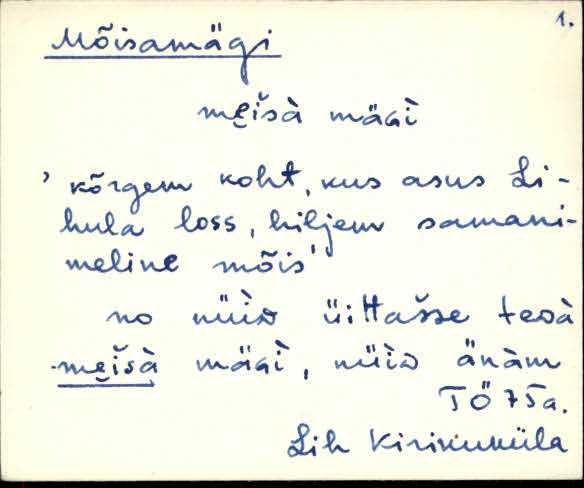 1.
Mõisamägi
mei̮šà mäɢì
'kõrgem koht, kus asus Li-
hula loss, hiljem samani-
meline mõis'
no nüìᴅ üittašse teᴅà
mei̮šà mäɢì, nüìᴅ änàm
TÖ 75a.
Lih Kirikuküla